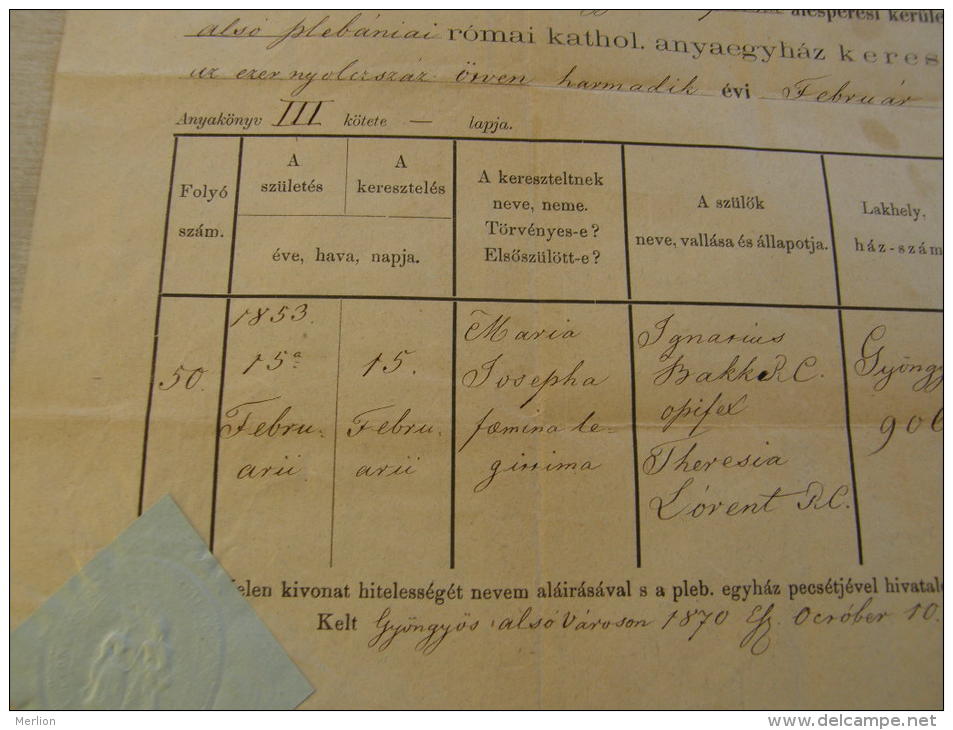 alesperesi kerüle
alsó plebániai római kathol. anyaegyház keres
az ezer nyolczszáz ötven harmadik évi Február
Anyakönyv III kötete — lapja.
Folyó
szám.
A
születés
A
keresztelés
éve, hava, napja.
A kereszteltnek
neve, neme.
Törvényes-e?
Elsőszülött-e?
A szülők
neve, vallása és állapotja.
Lakhely,
ház-szám
50.
1853.
15a
Febru-
arii
15.
Febru-
arii
Maria
Josepha
fæmina le-
gittima
Ignatius
Bakk R.C.
opifex
Theresia
Lórent R.C.
Gyöngy
906
Jelen kivonat hitelességét nevem aláirásával s a pleb. egyház pecsétjével hivatalo
Kelt Gyöngyös alsó Városon 1870 Október 10.
Merlion
www.delcampe.net